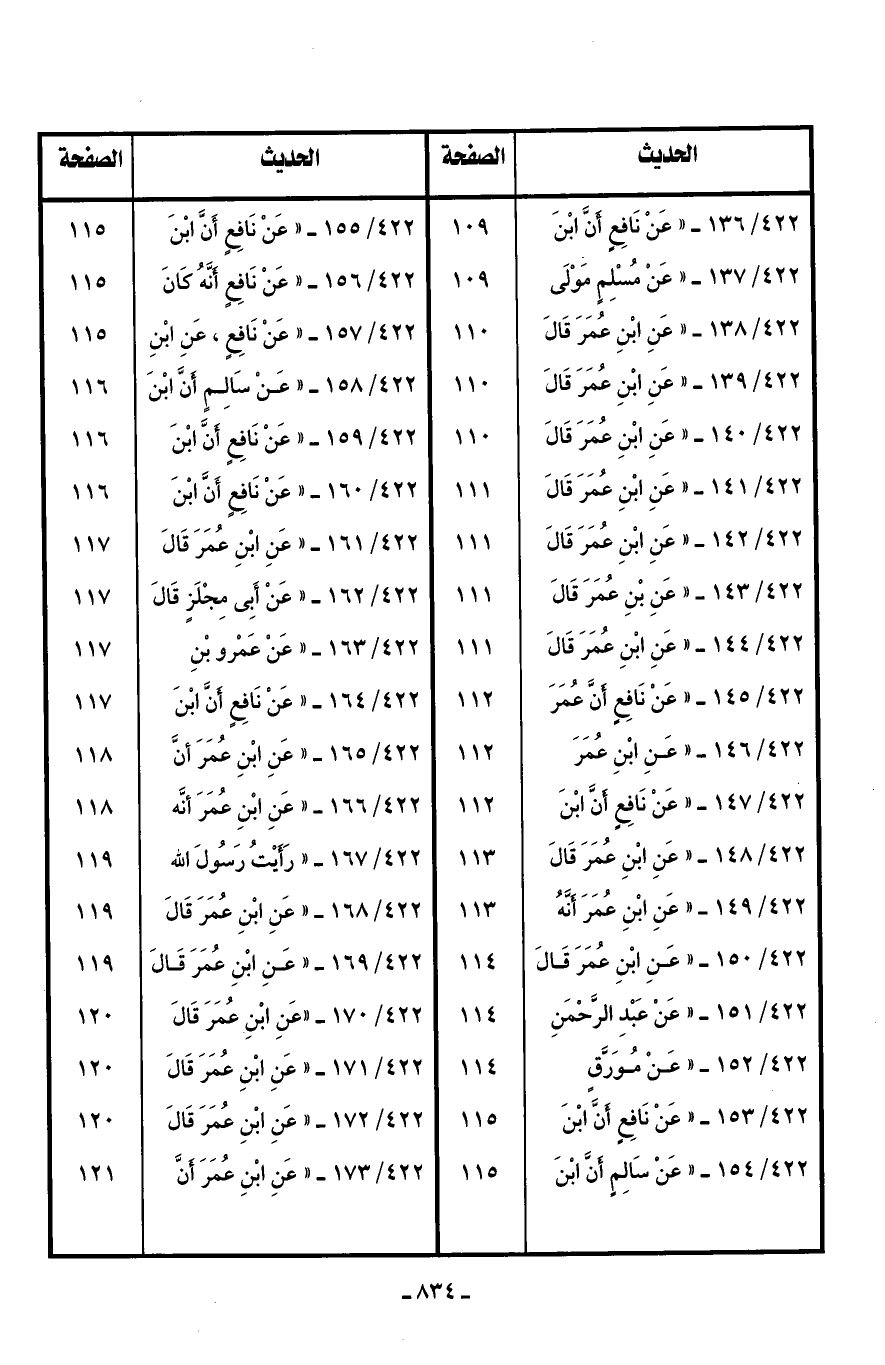 الحديث الصفحة الحديث الصفحة
٤٢٢/ ١٣٦ ـ « عَنْ نَافِعٍ أَنَّ ابْنَ ١٠٩ ٤٢٢/ ١٥٥ ـ « عَنْ نَافِعٍ أَنَّ ابْنَ ١١٥
٤٢٢/ ١٣٧ ـ « عَنْ مُسْلِمٍ مَوْلَى ١٠٩ ٤٢٢/ ١٥٦ ـ « عَنْ نَافِعٍ أَنَّهُ كَانَ ١١٥
٤٢٢/ ١٣٨ ـ « عَنِ ابْنِ عُمَرَ قَالَ ١١٠ ٤٢٢/ ١٥٧ ـ « عَنْ نَافِعٍ ، عَنِ ابْنِ ١١٥
٤٢٢/ ١٣٩ ـ « عَنِ ابْنِ عُمَرَ قَالَ ١١٠ ٤٢٢/ ١٥٨ ـ « عَـنْ سَالِـمٍ أَنَّ ابْنَ ١١٦
٤٢٢/ ١٤٠ ـ « عَنِ ابْنِ عُمَرَ قَالَ ١١٠ ٤٢٢/ ١٥٩ ـ « عَنْ نَافِعٍ أَنَّ ابْنَ ١١٦
٤٢٢/ ١٤١ ـ « عَنِ ابْنِ عُمَرَ قَالَ ١١١ ٤٢٢/ ١٦٠ ـ « عَنْ نَافِعٍ أَنَّ ابْنَ ١١٦
٤٢٢/ ١٤٢ ـ « عَنِ ابْنِ عُمَرَ قَالَ ١١١ ٤٢٢/ ١٦١ ـ « عَنِ ابْنِ عُمَرَ قَالَ ١١٧
٤٢٢/ ١٤٣ ـ « عَنِ بْنِ عُمَرَ قَالَ ١١١ ٤٢٢/ ١٦٢ ـ « عَنْ أَبِى مِجْلَزٍ قَالَ ١١٧
٤٢٢/ ١٤٤ ـ « عَنِ ابْنِ عُمَرَ قَالَ ١١١ ٤٢٢/ ١٦٣ ـ « عَنْ عَمْرِو بْنِ ١١٧
٤٢٢/ ١٤٥ ـ « عَنْ نَافِعٍ أَنَّ عُمَرَ ١١٢ ٤٢٢/ ١٦٤ ـ « عَنْ نَافِعٍ أَنَّ ابْنَ ١١٧
٤٢٢/ ١٤٦ ـ « عَـنِ ابْنِ عُمَرَ ١١٢ ٤٢٢/ ١٦٥ ـ « عَنِ ابْنِ عُمَرَ أنَّ ١١٨
٤٢٢/ ١٤٧ ـ « عَنْ نَافِعٍ أَنَّ ابْنَ ١١٢ ٤٢٢/ ١٦٦ ـ « عَنِ ابْنِ عُمَرَ أنَّه ١١٨
٤٢٢/ ١٤٨ ـ « عَنِ ابْنِ عُمَرَ قَالَ ١١٣ ٤٢٢/ ١٦٧ ـ « رَأَيْتُ رَسُولَ الله ١١٩
٤٢٢/ ١٤٩ ـ « عَنِ ابْنِ عُمَرَ أَنَّهُ ١١٣ ٤٢٢/ ١٦٨ ـ « عَنِ ابْنِ عُمَرَ قَالَ ١١٩
٤٢٢/ ١٥٠ ـ « عَـنِ ابْنِ عُمَرَ قَـالَ ١١٤ ٤٢٢/ ١٦٩ ـ « عَـنِ ابْنِ عُمَرَ قَـالَ ١١٩
٤٢٢/ ١٥١ ـ « عَنْ عَبْدِ الرَّحْمَنِ ١١٤ ٤٢٢/ ١٧٠ ـ «عَنِ ابْنِ عُمَرَ قَالَ ١٢٠
٤٢٢/ ١٥٢ ـ « عَـنْ مُـوَرَّقٍ ١١٤ ٤٢٢/ ١٧١ ـ « عَنِ ابْنِ عُمَرَ قَالَ ١٢٠
٤٢٢/ ١٥٣ ـ « عَنْ نَافِعٍ أَنَّ ابْنَ ١١٥ ٤٢٢/ ١٧٢ ـ « عَنِ ابْنِ عُمَرَ قَالَ ١٢٠
٤٢٢/ ١٥٤ ـ « عَنْ سَالِمٍ أَنَّ ابْنَ ١١٥ ٤٢٢/ ١٧٣ ـ « عَنِ ابْنِ عُمَرَ أَنَّ ١٢١
ـ ٨٣٤ ـ